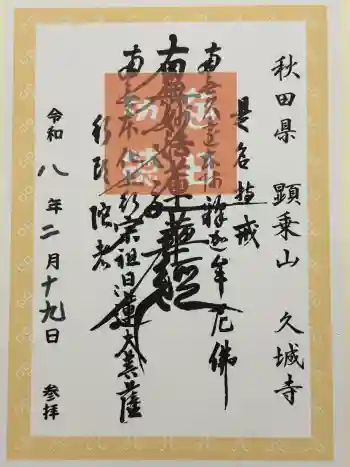 秋田県　顕乗山　久城寺
是名持戒
南無久遠本師釋迦牟尼佛
南無妙法蓮華経
南無本化上行宗祖日蓮大菩薩
行頭陀者
令和八年二月十九日　参拝